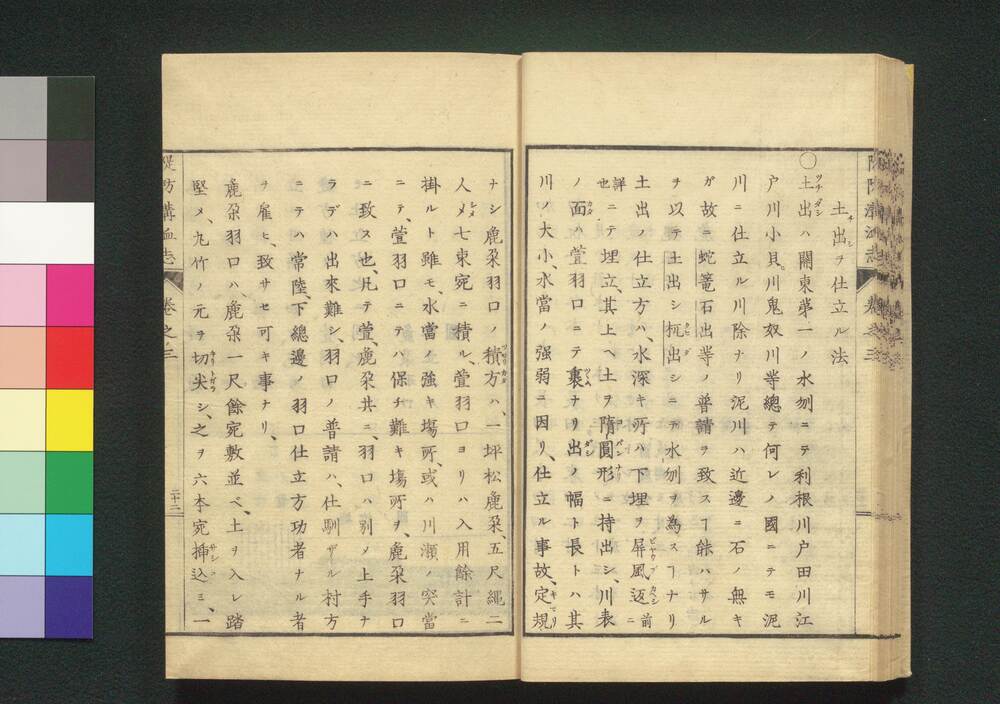 土出ヲ仕立ル法
〇土出ハ關東第一ノ水刎ニテ利根川戸田川江
戸川小貝川鬼奴川等總テ何レノ國ニテモ泥
川ニ仕立ル川除ナリ泥川ハ近邊ニ石ノ無キ
ガ故ニ蛇篭石出等ノ普請ヲ致スヿ能ハサル
ヲ以テ土出シ杭出シニテ水刎ヲ為スヿナリ
土出ノ仕立方ハ、水深キ所ハ下埋ヲ屏風返前ニ
詳也ニテ埋立、其上ヘ土ヲ隋圓形ニ持出シ、川表
ノ面ハ萱羽口ニテ裹ナリ出ノ幅ト長トハ其
川ノ大小、水當ノ强弱ニ因リ、仕立ル事故、定規
ナシ麁朶羽口ノ積方ハ、一坪松麁朶、五尺繩二
人〆七束宛ニ積ル、萱羽口ヨリハ入用餘計ニ
掛ルト雖モ、水當ノ強キ塲所、或ハ川瀬ノ突當
ニテ、萱羽口ニテハ保チ難キ塲所ヲ、麁朶羽口
ニ致ス也、凡テ萱、麁朶共ニ、羽口ハ別〆上手ナ
ラデハ出來難シ、羽口ノ普請ハ、仕馴ザル村方
ニテハ常陸、下總邊ノ羽口仕立方功者ナル者
ヲ雇ヒ、致サセ可キ事ナリ、
麁朶羽口ハ、麁朶一尺餘宛敷並ベ、土ヲ入レ踏
堅メ、九竹ノ元ヲ切尖シ、之ヲ六本宛挿込ミ、一
堤防溝洫志
卷之三
二十二